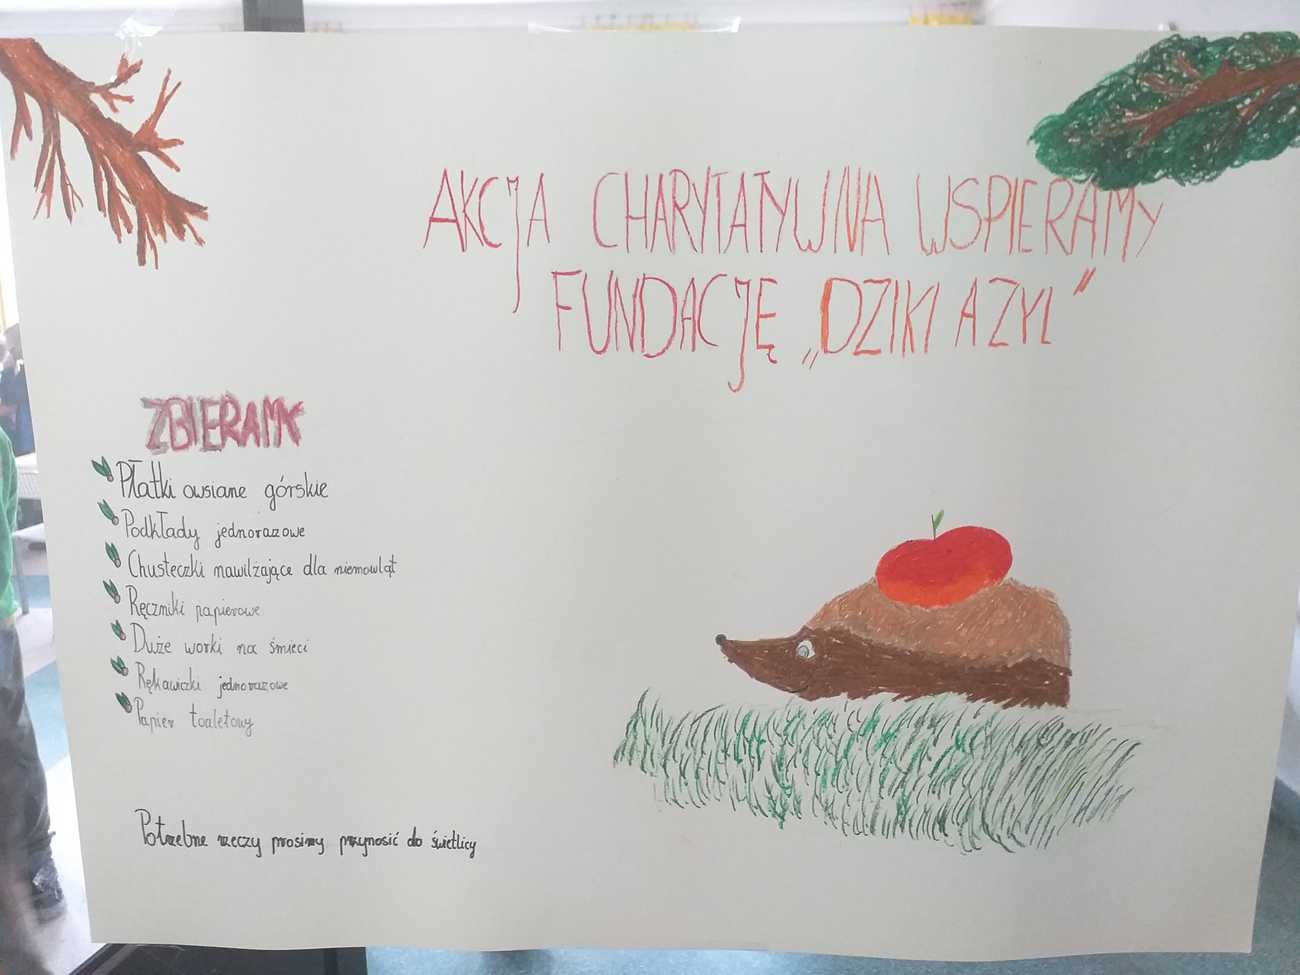 AKCJA CHARYTATYWNA WSPIERAMY
FUNDACJĘ „DZIKI AZYL”
ZBIERAMY
Płatki owsiane górskie
Podkłady jednorazowe
Chusteczki nawilżające dla niemowląt
Ręczniki papierowe
Duże worki na śmieci
Rękawiczki jednorazowe
Papier toaletowy
Potrzebne rzeczy prosimy przynosić do świetlicy